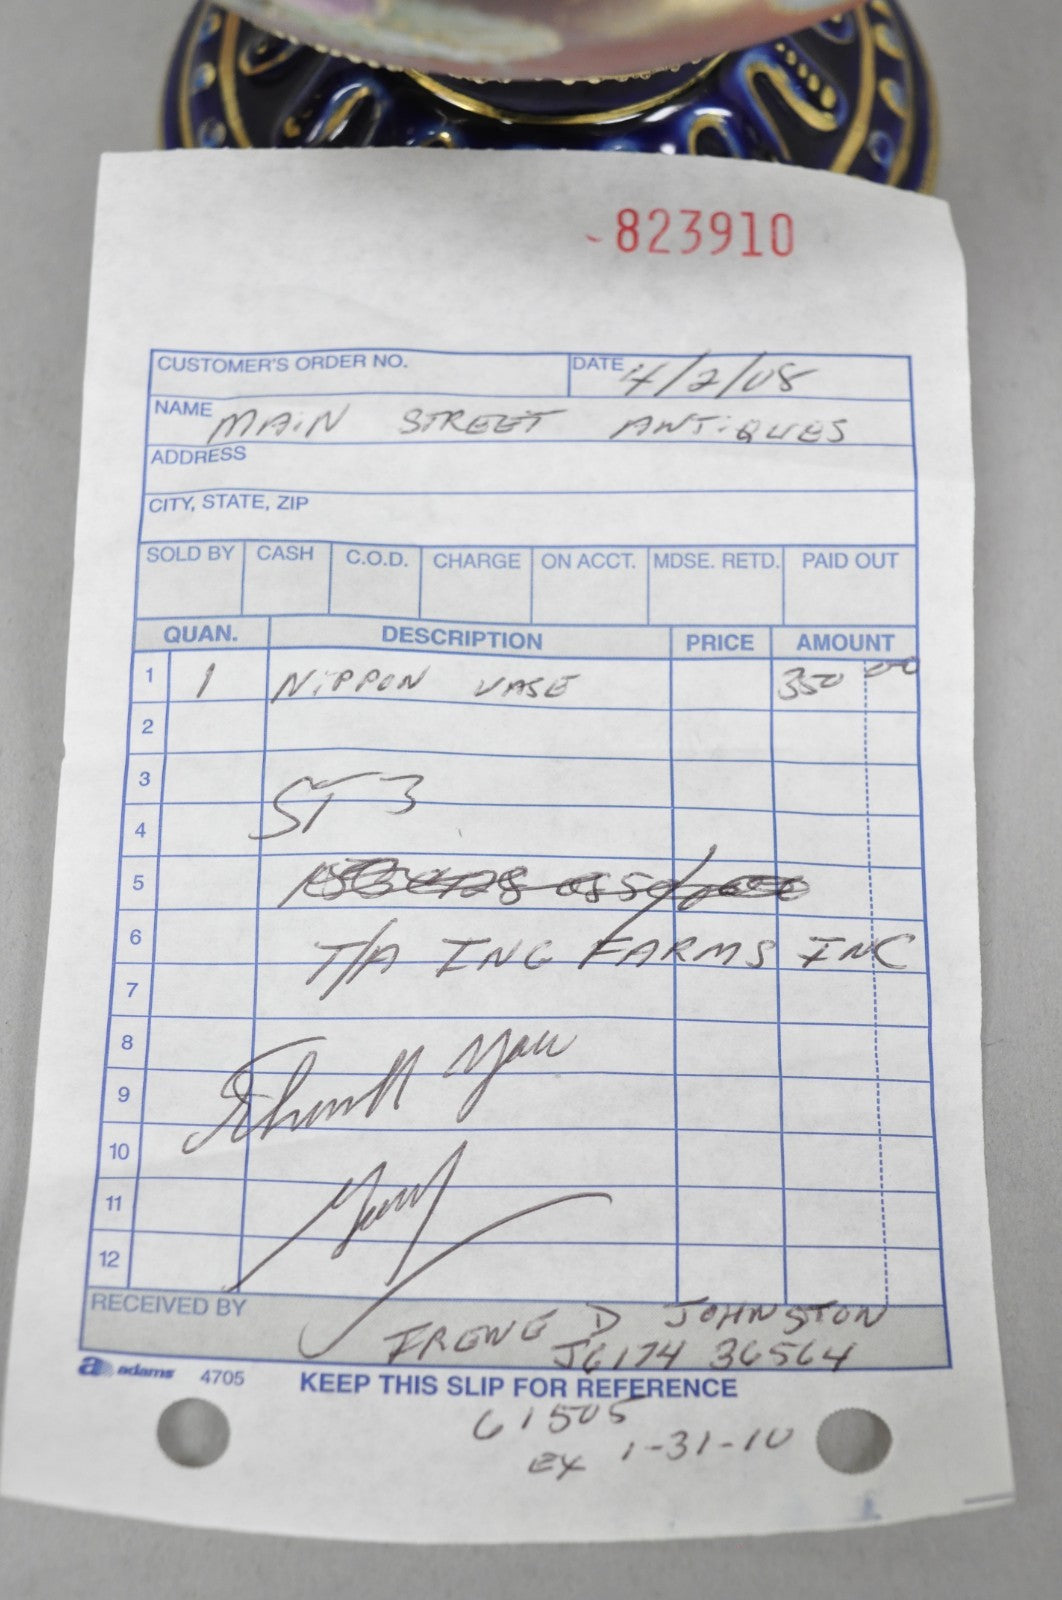 823910
CUSTOMER'S ORDER NO. DATE 4/2/08
NAME MAIN STREET ANTIQUES
ADDRESS
CITY, STATE, ZIP
SOLD BY CASH C.O.D. CHARGE ON ACCT. MDSE. RETD. PAID OUT
QUAN. DESCRIPTION PRICE AMOUNT
1 1 NIPPON VASE 350 00
2
3 ST 3
4
5
6 T/A ING FARMS INC
7
8
9 Thank You
10
11
12
RECEIVED BY IRENE D JOHNSTON
J6174 36564
adams 4705 KEEP THIS SLIP FOR REFERENCE
61505
EX 1-31-10